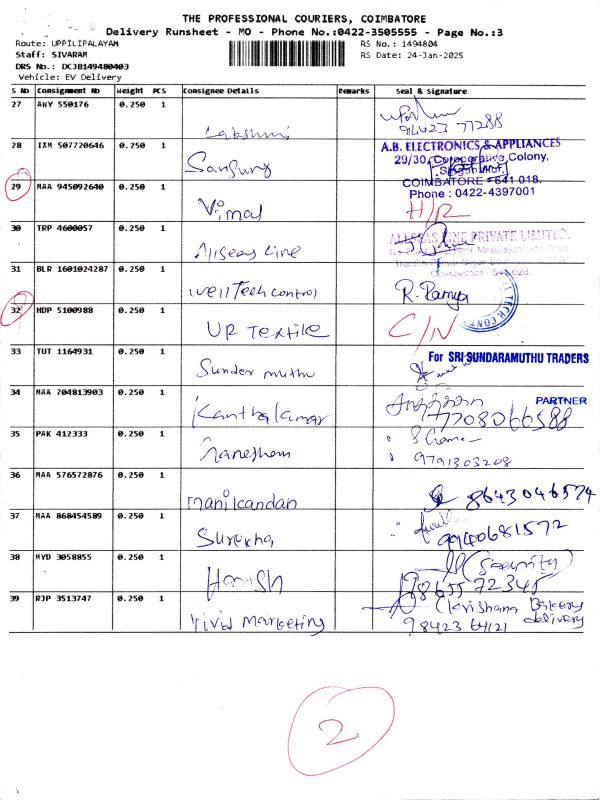 THE PROFESSIONAL COURIERS, COIMBATORE
Delivery Runsheet - MO - Phone No.:0422-3505555 - Page No.:3
Route: UPPILIPALAYAM
RS No.: 1494804
Staff: SIVARAM
RS Date: 24-Jan-2025
DRS No.: DCJB149480403
Vehicle: EV Delivery
S No Consignment No Weight PCS Consignee Details Remarks Seal & Signature
27 ANY 550176 0.250 1
Lakshmi 96423 77288
28 IXM 507720646 0.250 1 A.B. ELECTRONICS & APPLIANCES
29/30, Co-operative Colony,
COIMBATORE - 641 018.
Phone : 0422-4397001
29 MAA 945092640 0.250 1
Vimal H/R
30 TRP 4600057 0.250 1 ALLSEAS LINE PRIVATE LIMITED.
Allseas Line
31 BLR 1601024287 0.250 1
Well Tech control R. Ramya
32 HDP 5100988 0.250 1
UR Textile C/N
33 TUT 1164931 0.250 1 For SRI SUNDARAMUTHU TRADERS
Sunder muthu
34 MAA 704813903 0.250 1 PARTNER
7708066588
35 PAK 412333 0.250 1
Ganeshem 9791303208
36 MAA 576572876 0.250 1
manikandan 8643046574
37 MAA 868454589 0.250 1
Surekha 9940681572
38 MYD 3058855 0.250 1 (Security)
Harish 98655 72345
39 RJP 3513747 0.250 1 (Krishana Bakery
Vivid Marketing 98423 64121 delivery
2